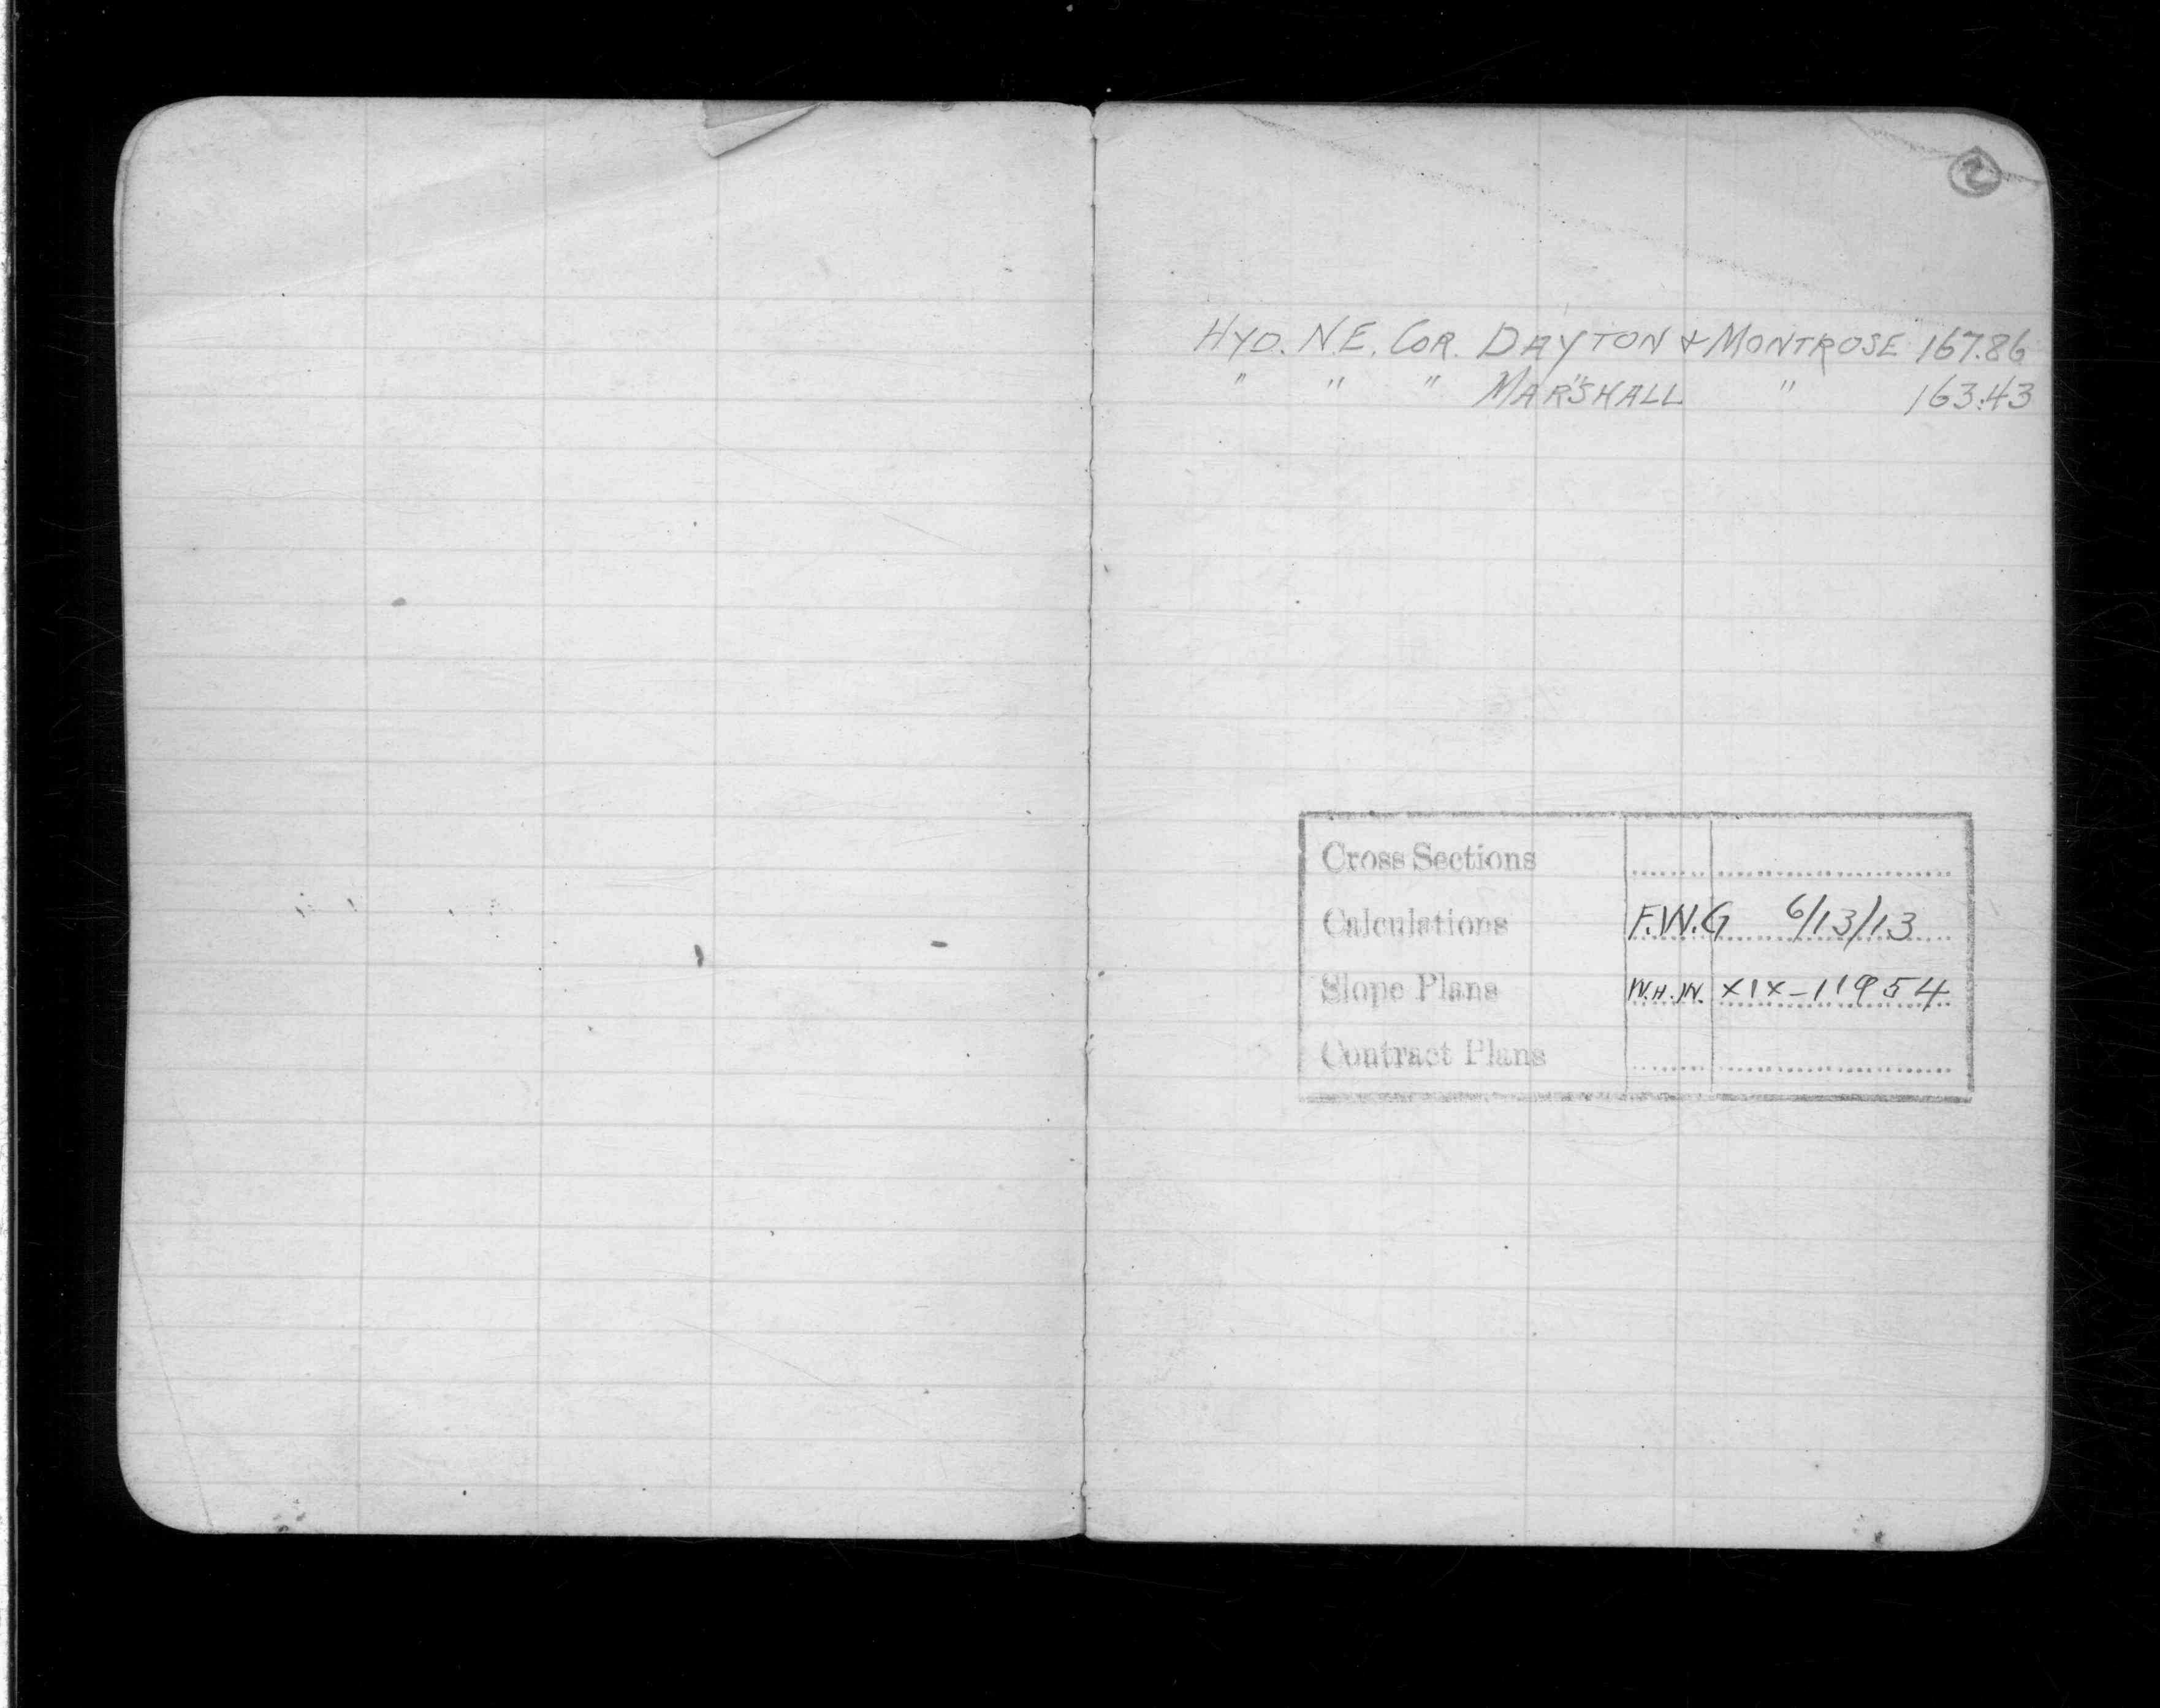 2
HYD. N.E. COR. DAYTON & MONTROSE 167.86
" " " MARSHALL " 163.43
Cross Sections
Calculations F.W.G 6/13/13
Slope Plans W.H.W. XIX-11954
Contract Plans